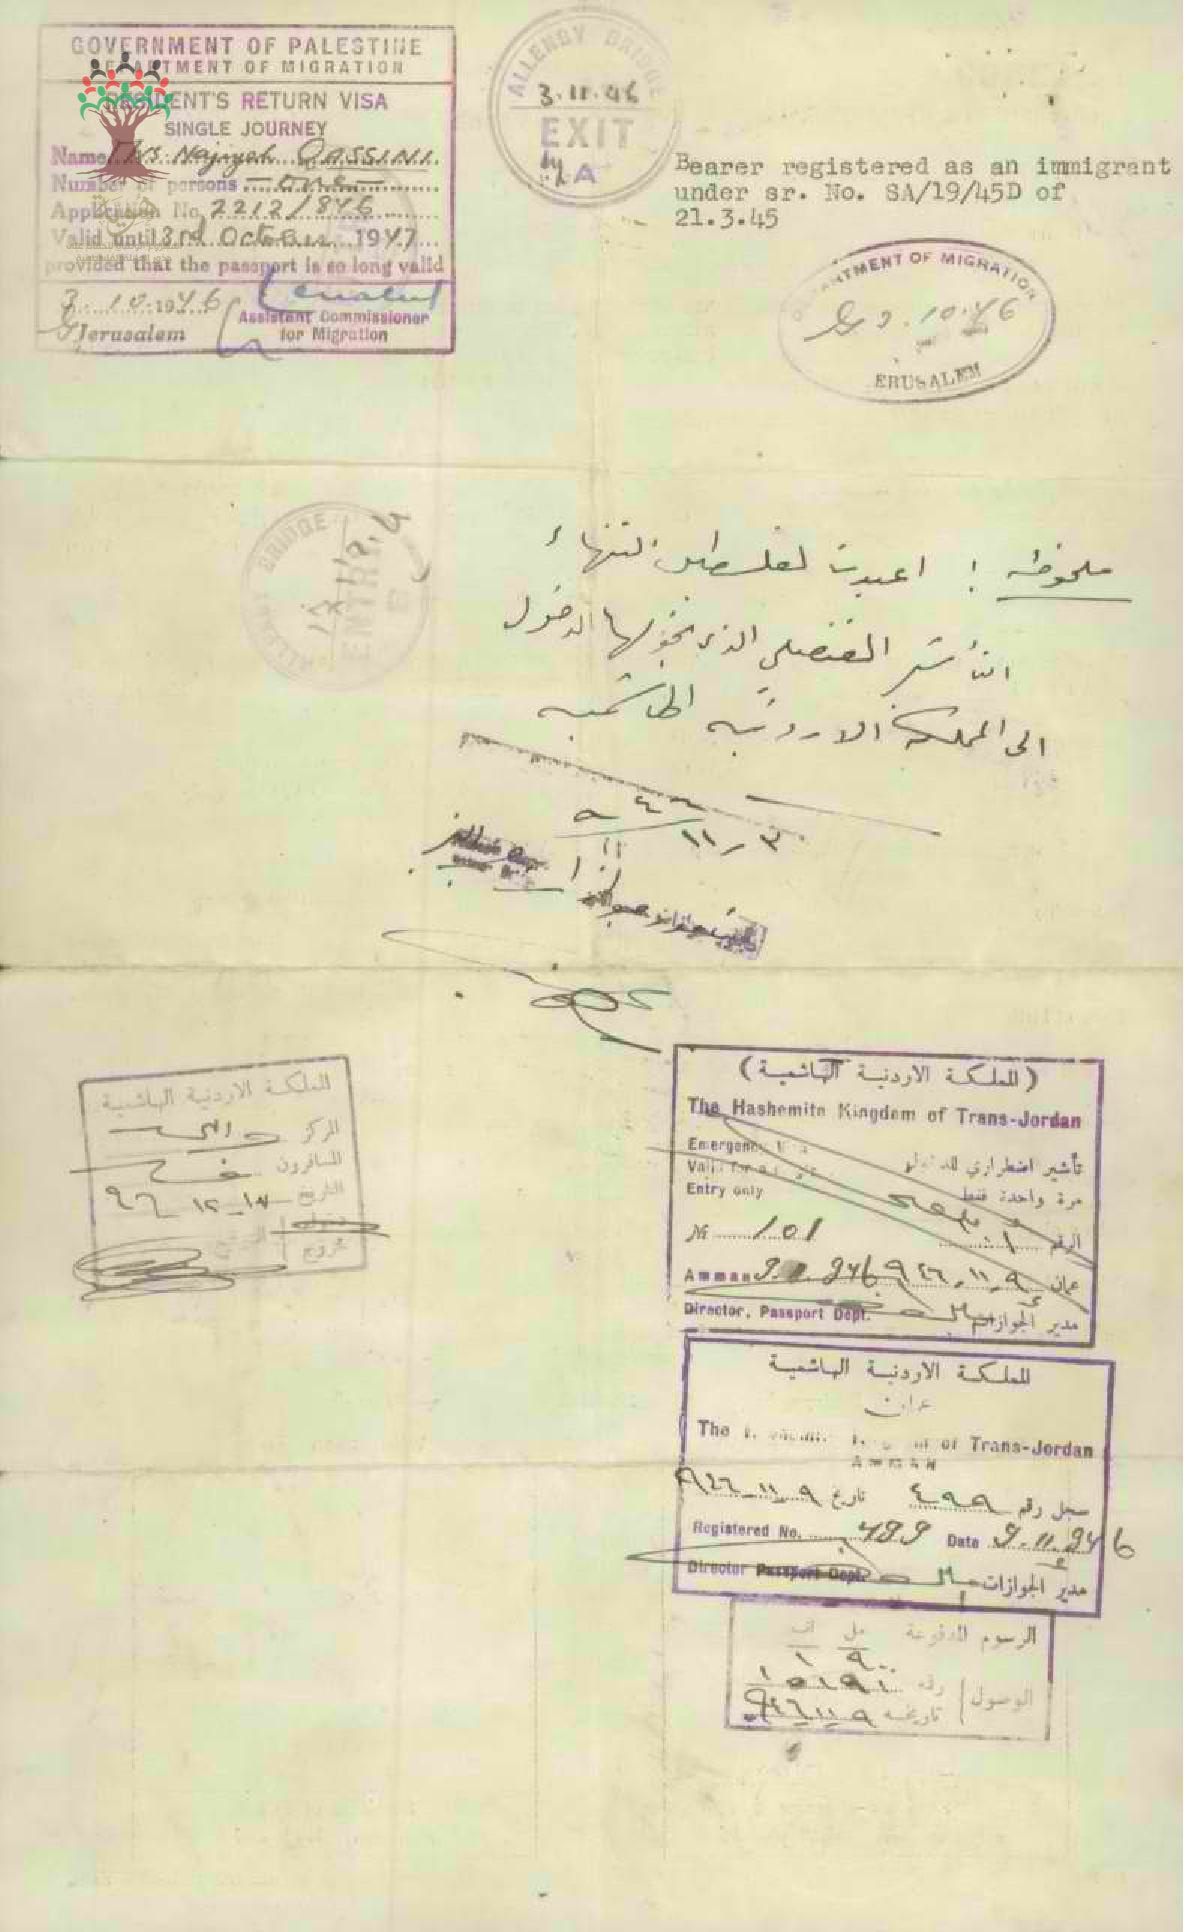 GOVERNMENT OF PALESTINE
DEPARTMENT OF MIGRATION
RESIDENT'S RETURN VISA
SINGLE JOURNEY
Name Mrs. Najiyah QASSINI.
Number of persons — one —
Application No. 2212/846
Valid until 3rd October 1947
provided that the passport is so long valid
3.10.1946
Jerusalem
Assistant Commissioner
for Migration
ALLENBY BRIDGE
3.11.46
EXIT
A
Bearer registered as an immigrant
under sr. No. SA/19/45D of
21.3.45
DEPARTMENT OF MIGRATION
3.10.46
JERUSALEM
ALLENBY BRIDGE
ENTRY
ملحوظه : اعيدت لفلسطين لانتهاء
التأشير القنصلي الذي يخولها الدخول
الى المملكة الاردنية الهاشمية
٣ـ١١ـ٩٤٦
المملكة الاردنية الهاشمية
المركز
المسافرون
التاريخ ١٧ـ١٢ـ٩٤٦
دخول
خروج
(المملكة الاردنية الهاشمية)
The Hashemite Kingdom of Trans-Jordan
Emergency
Valid for
Entry only
تأشير اضطراري للدخول
مرة واحدة فقط
№ 101 الرقم
Amman 9.11.946 ٩ـ١١ـ٩٤٦ عمان
Director, Passport Dept. مدير الجوازات
المملكة الاردنية الهاشمية
عمان
The Hashemite Kingdom of Trans-Jordan
AMMAN
سجل رقم ٤٩٩ تاريخ ٩ـ١١ـ٩٤٦
Registered No. 499 Date 9.11.946
Director Passport Dept. مدير الجوازات
الرسوم المدفوعة مل
الوصول رقمه
تاريخه ٩ـ١١ـ٩٤٦